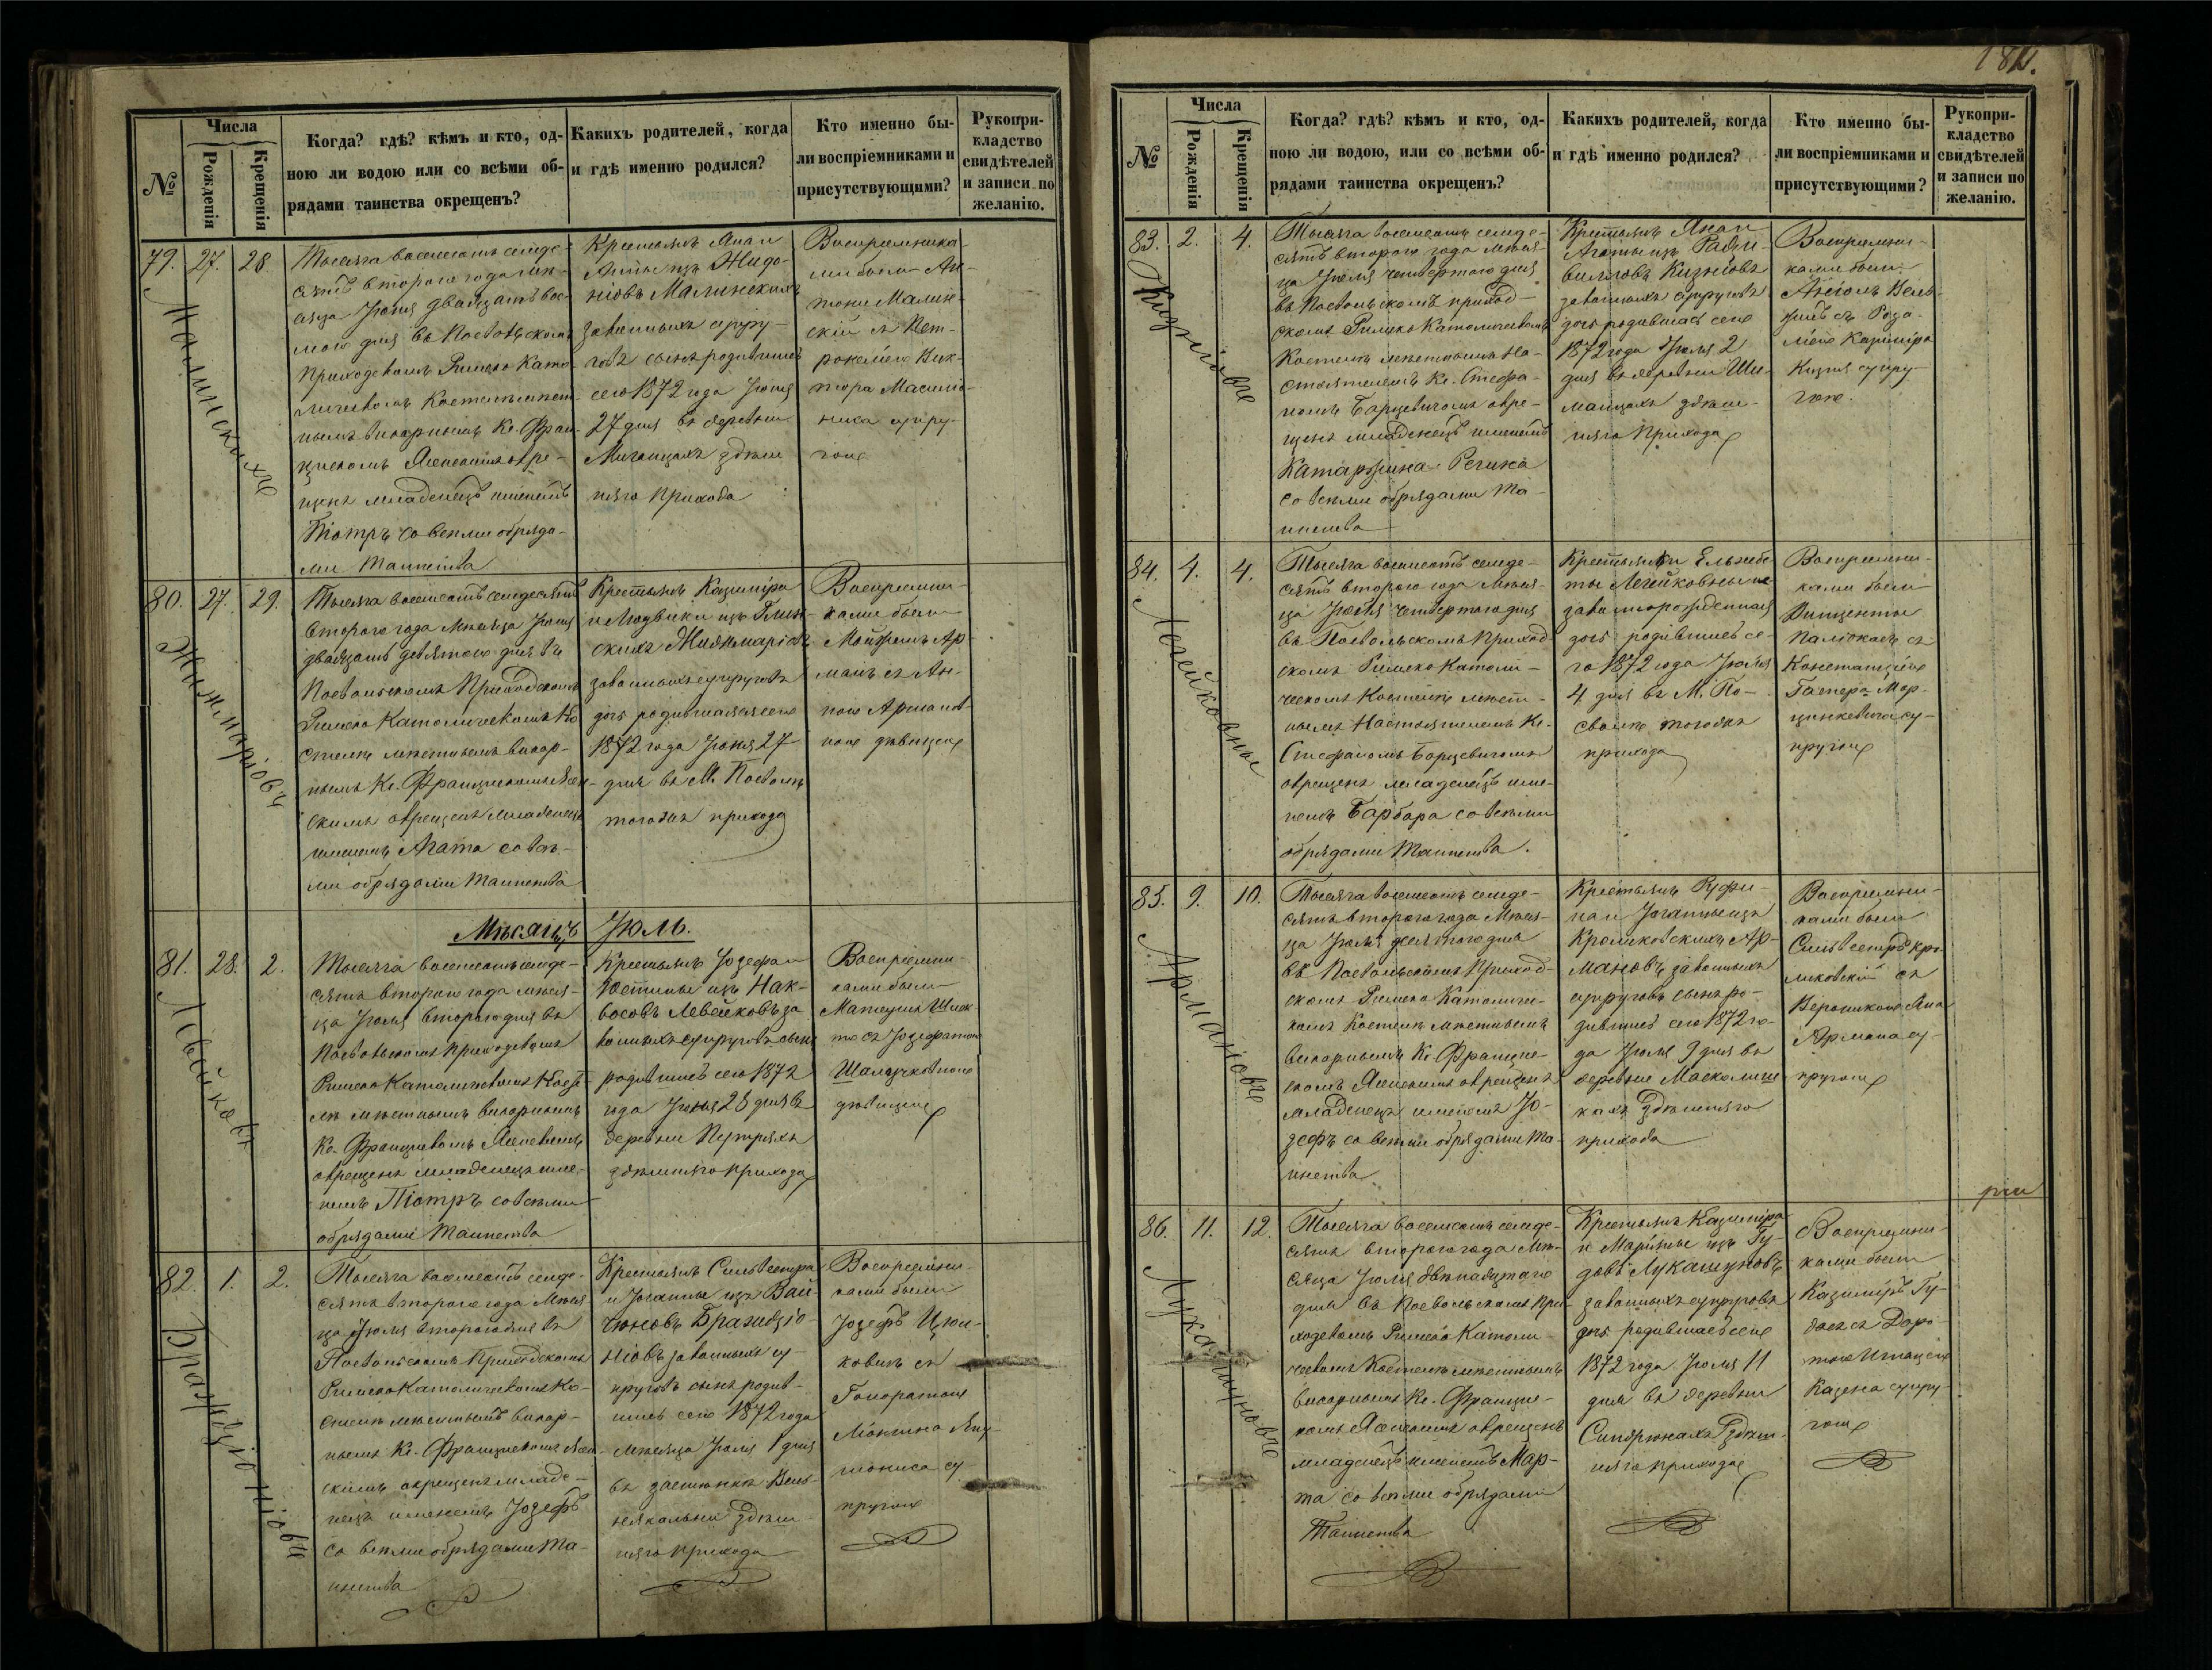 №
Числа
Рожденія
Крещенія
Когда? гдѣ? кѣмъ и кто, од-
ною ли водою или со всѣми об-
рядами таинства окрещенъ?
Какихъ родителей, когда
и гдѣ именно родился?
Кто именно бы-
ли воспріемниками и
присутствующими?
Рукопри-
кладство
свидѣтелей
и записи по
желанію.
79. 27. 28.
Малинскихъ
Тысяча восемсотъ семде-
сятъ второго года мѣ-
сяца Іюня двадцатъ вос-
мого дня въ Посвольскомъ
Приходскомъ Римско Като-
лическомъ Костелѣ мѣст-
нымъ викарнымъ Кс. Фран-
цискомъ Ясенскимъ окре-
щенъ младенецъ именемъ
Піотръ со всѣми обряда-
ми Таинства
Крестьянъ Яна и
Анны изъ Жидо-
ніовъ Малинскихъ
законныхъ супру-
говъ сынъ родившійся
сего 1872 года Іюня
27 дня въ деревни
здѣш-
няго прихода
Воспріемника-
ми были Ан-
тони Малин-
скій съ Пет-
ронелею Вик-
тора
супру-
гою
80. 27. 29.
Жижмаріовъ
Тысяча восемсотъ семдесятъ
второго года Мѣсяца Іюня
двадцатъ девятого дня въ
Посвольскомъ Приходскомъ
Римско Католическомъ Ко-
стелѣ мѣстнымъ викар-
нымъ Кс. Францискомъ Ясен-
скимъ окрещенъ младенецъ
именемъ Агата со всѣ-
ми обрядами Таинства
Крестьянъ Казиміра
и Людвики изъ Глин-
скихъ Жижмаріовъ
законныхъ супруговъ
дочь родившаяся сего
1872 года Іюня 27
дня въ М. Посволѣ
тогожъ прихода
Воспріемни-
ками были
Ар-
манъ съ Ан-
ною Арманов-
ною дѣвицею
Мѣсяцъ Іюль.
81. 28. 2.
Левейковъ
Тысяча восемсотъ семде-
сятъ второго года мѣся-
ца Іюля второго дня въ
Посвольскомъ Приходскомъ
Римско Католическомъ Косте-
лѣ мѣстнымъ викарнымъ
Кс. Францискомъ Ясенскимъ
окрещенъ младенецъ име-
немъ Піотръ со всѣми
обрядами Таинства
Крестьянъ Іозефа и
Юстины изъ Нак-
восовъ Левейковъ за-
конныхъ супруговъ сынъ
родившійся сего 1872
года Іюня 28 дня въ
деревни Путряхъ
здѣшняго прихода
Воспріемни-
ками были
Матеушъ
съ Іозефатою
дѣвицею
82. 1. 2.
Бражидзіоніовъ
Тысяча восемсотъ семде-
сятъ второго года Мѣся-
ца Іюля второго дня въ
Посвольскомъ Приходскомъ
Римско Католическомъ Ко-
стелѣ мѣстнымъ викар-
нымъ Кс. Францискомъ Ясен-
скимъ окрещенъ младе-
нецъ именемъ Іозефъ
со всѣми обрядами Та-
инства
Крестьянъ Сильвестра
и Іоганны изъ Вай-
чюновъ Бражидзіо-
ніовъ законныхъ су-
пруговъ сынъ родив-
шійся сего 1872 года
Мѣсяца Іюля 1 дня
въ застѣнкѣ
здѣш-
няго прихода
Воспріемни-
ками были
Іозефъ
съ
Гоноратою
су-
пругою
182.
№
Числа
Рожденія
Крещенія
Когда? гдѣ? кѣмъ и кто, од-
ною ли водою, или со всѣми об-
рядами таинства окрещенъ?
Какихъ родителей, когда
и гдѣ именно родился?
Кто именно бы-
ли воспріемниками и
присутствующими?
Рукопри-
кладство
свидѣтелей
и записи по
желанію.
83. 2. 4.
Кизніовъ
Тысяча восемсотъ семде-
сятъ второго года мѣся-
ца Іюля четвертого дня
въ Посвольскомъ приход-
скомъ Римско Католическомъ
Костелѣ мѣстнымъ На-
стоятелемъ Кс. Стефа-
номъ Барцевичомъ окре-
щенъ младенецъ именемъ
Катаржина-Регина
со всѣми обрядами Та-
инства
Крестьянъ Яна и
Агаты изъ Радзи-
вилловъ Кизніовъ
законныхъ супруговъ
дочь родившаяся сего
1872 года Іюля 2
дня въ деревни Ши-
маицахъ здѣш-
няго Прихода
Воспріемни-
ками были
съ Роза-
ліею Казиміра
Кизня супру-
гою.
84. 4. 4.
Легейковны
Тысяча восемсотъ семде-
сятъ второго года Мѣся-
ца Іюля четвертого дня
въ Посвольскомъ Приход-
скомъ Римско Католи-
ческомъ Костелѣ мѣст-
нымъ Настоятелемъ Кс.
Стефаномъ Барцевичомъ
окрещенъ младенецъ име-
немъ Барбара со всѣми
обрядами Таинства.
Крестьянки Ельжбе-
ты Легейковны не-
законнорожденная
дочь родившаяся се-
го 1872 года Іюля
4 дня въ М. По-
сволѣ тогожъ
прихода
Воспріемни-
ками были
Винценты
съ
Констанціею
Гаспера Мар-
цинкевича су-
пругою
85. 9. 10.
Арманіовъ
Тысяча восемсотъ семде-
сятъ второго года Мѣся-
ца Іюля десятого дня
въ Посвольскомъ Приход-
скомъ Римско Католиче-
комъ Костелѣ мѣстнымъ
викарнымъ Кс. Францис-
комъ Ясенскимъ окрещенъ
младенецъ именемъ Іо-
зефъ со всѣми обрядами Та-
инства
Крестьянъ Руфи-
на и Іоганны изъ
Кроликовскихъ Ар-
мановъ законныхъ
супруговъ сынъ ро-
дившійся сего 1872 го-
да Іюля 9 дня въ
деревни
здѣшняго
прихода
Воспріемни-
ками были
Сильвестръ Кро-
ликовскій съ
Вероникою Яна
Армана су-
пругою
86. 11. 12.
Лукашуновъ
Тысяча восемсотъ семде-
сятъ второго года Мѣ-
сяца Іюля двѣнадцатаго
дня въ Посвольскомъ При-
ходскомъ Римско Католи-
ческомъ Костелѣ мѣстнымъ
викарнымъ Кс. Францис-
комъ Ясенскимъ окрещенъ
младенецъ именемъ Мар-
та со всѣми обрядами
Таинства
Крестьянъ Казиміра
и Маріяны изъ Гу-
довъ Лукашуновъ
законныхъ супруговъ
дочь родившаяся сего
1872 года Іюля 11
дня въ деревни
здѣш-
няго прихода
Воспріемни-
ками были
Казиміръ Гу-
съ Доро-
тою Игнація
супру-
гою